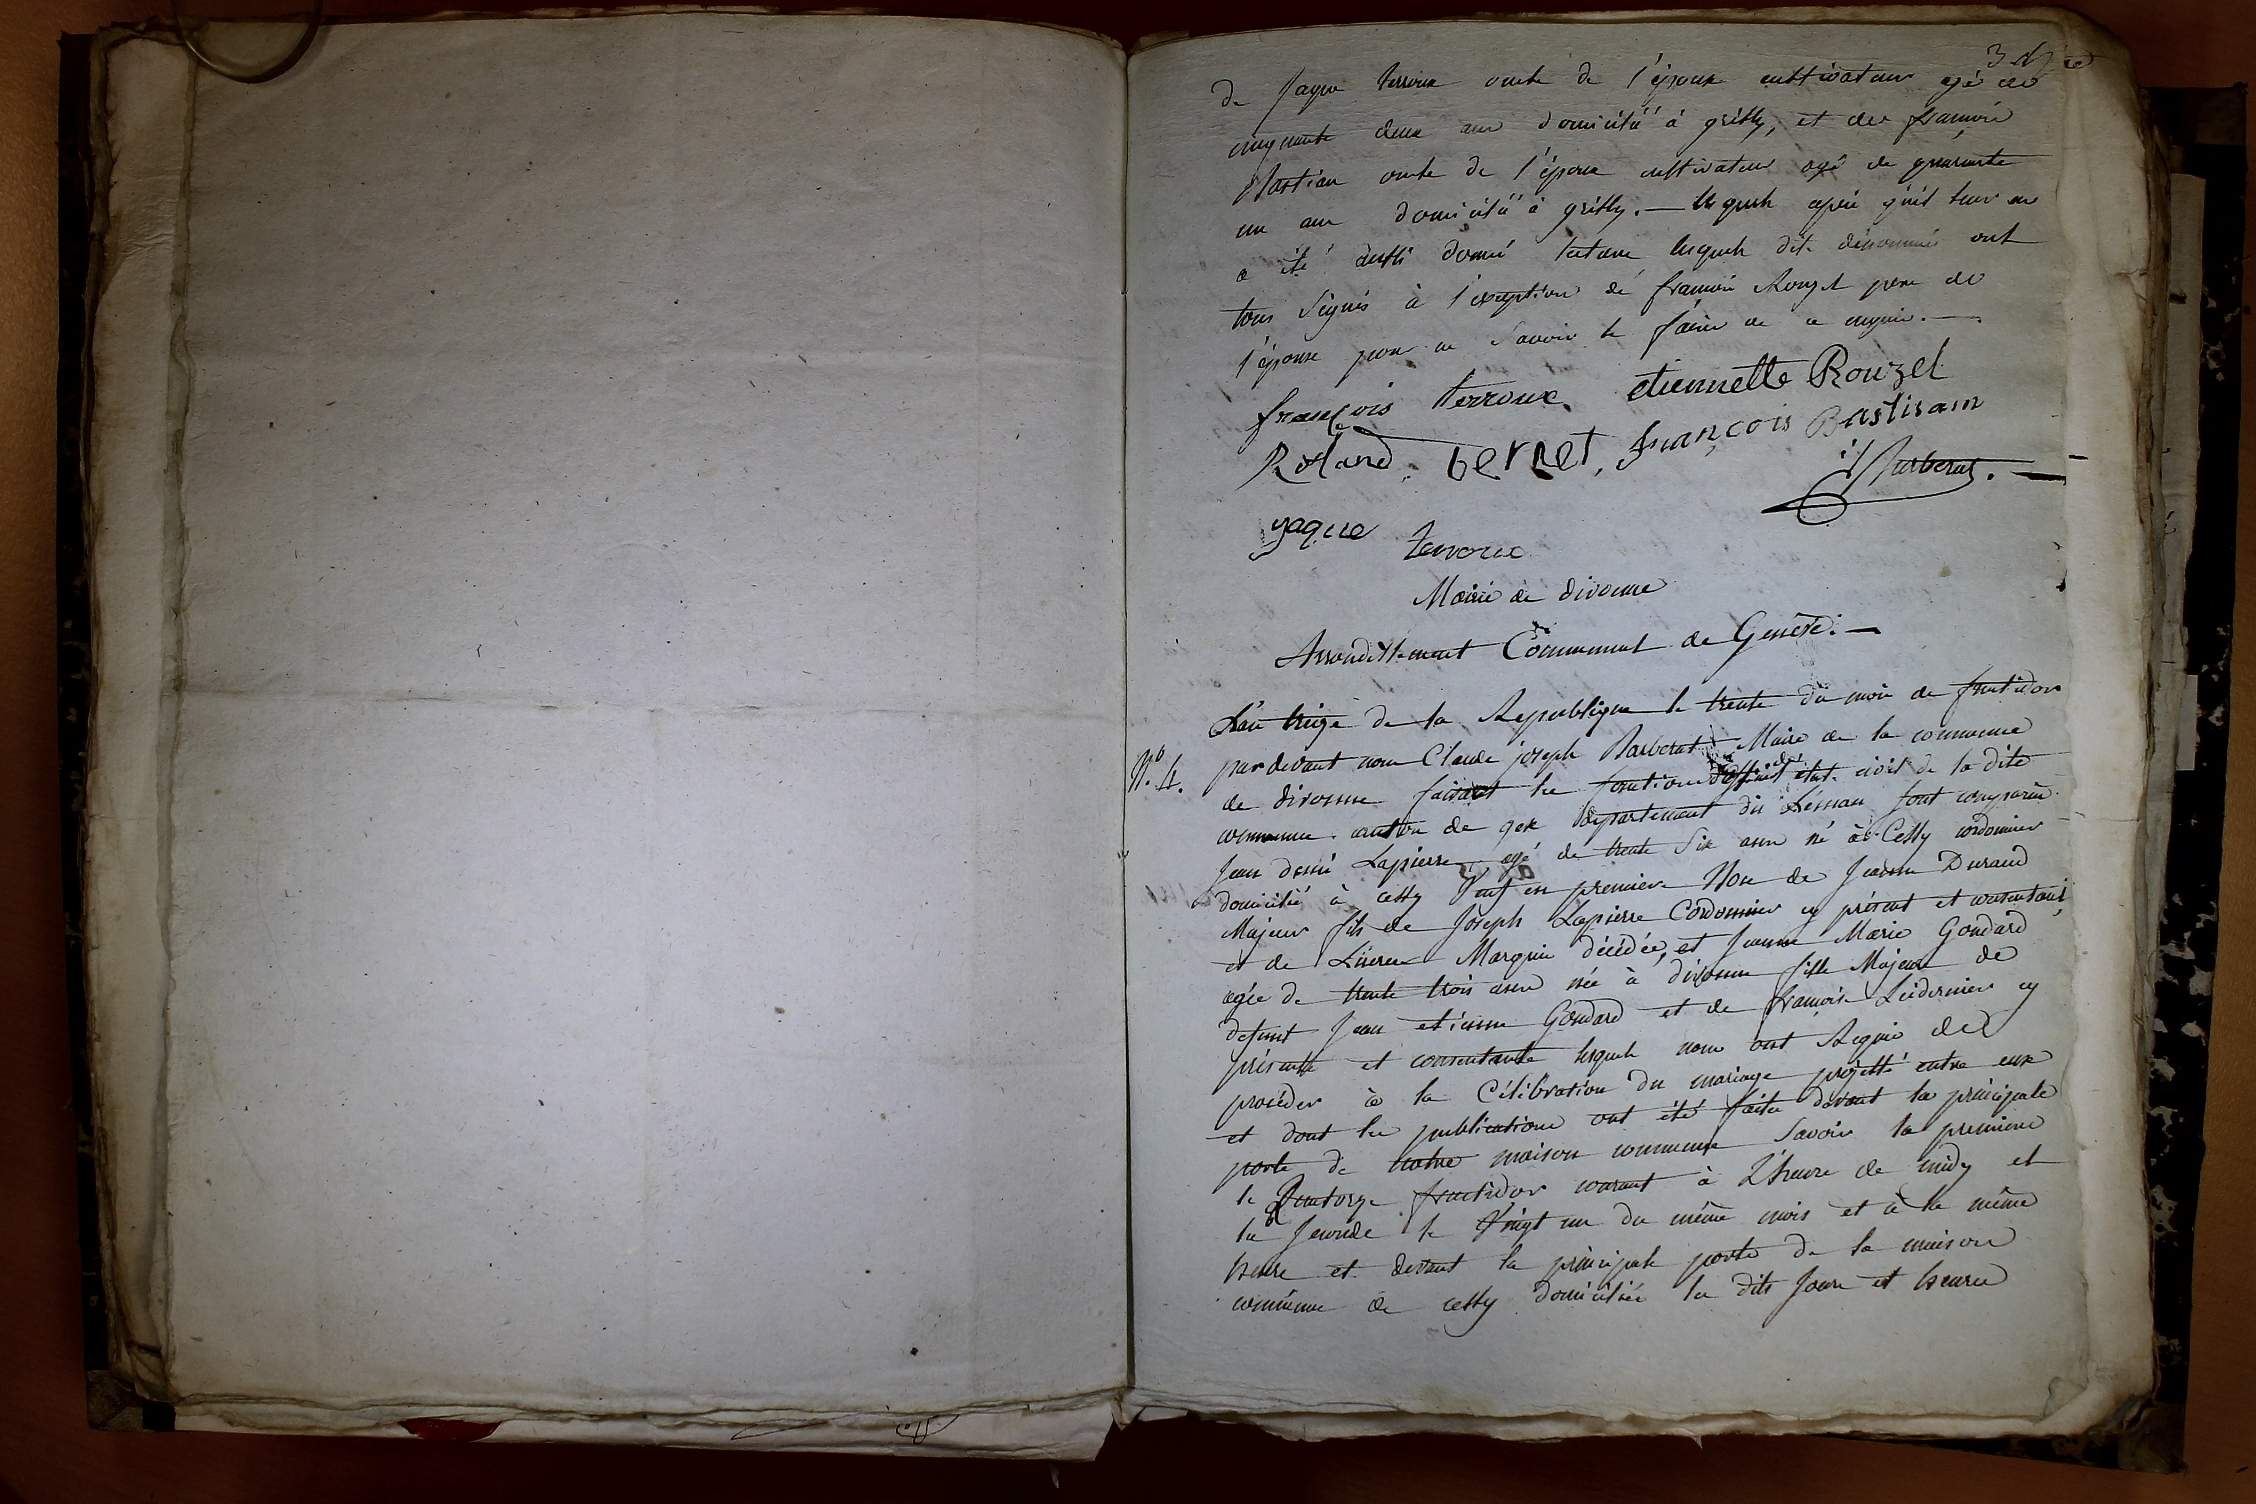 de Jaque terroux oncle de l'époux cultivateur agé de
cinquante deux ans domicilié à grilly, et de françois
Bastian oncle de l'épouse cultivateur agé de quarante
un ans domicilié à grilly. — lesquels après qu'il leur en
a été aussi donné lecture lesquels dits dénommés ont
tous signés à l'exception de françois Rouzet pere de
l'épouse pour ne savoir le faire de ce enquis. —
françois terroux etiennette Rouzet
Roland vernet, françois Bastisam
Barberat. —
yaque terroux
Mairie de divonne
Arrondissement Communal de Genève. —
L'an treize de la Republique le trente du mois de fructidor
N.o 4.
par devant nous Claude joseph Barberat Maire de la commune
de divonne faisant les fonctions d'officier de l'état civil de la dite
commune canton de gex departement du Léman sont comparus
Jean Lapierre agé de trente six ans né à Cessy cordonnier
domicilié à cessy veuf en premiere Nose de Jeanne Durand
Majeur fils de Joseph Lapierre Cordonnier cy présent et consentant
et de Marquis décédée, et Jeanne Marie Gondard
agée de trente trois ans née à divonne fille Majeure de
defunt Jean etienne Gondard et de françoise cy
présente et consentante lesquels nous ont Requis de
procéder à la Célébration du mariage projetté entre eux
et dont les publications ont été faites devant la principale
porte de notre maison commune Savoir la premiere
le Quatorze fructidor courant à L'heure de midy et
la Seconde le Vingt un du même mois et à la même
heure et devant la principale porte de la maison
commune de cessy domiciliée les dits Jours et heures